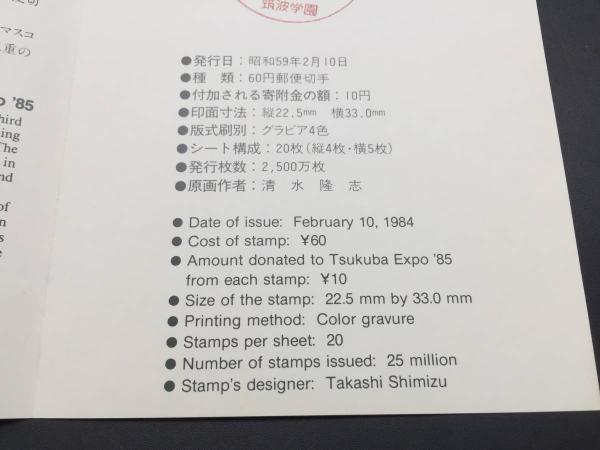 便切
マスコ
重の
'85
hird
ning
The
in
nd
of
n
s
e
筑波学園
●発行日：昭和59年2月10日
●種　類：60円郵便切手
●付加される寄附金の額：10円
●印面寸法：縦22.5mm　横33.0mm
●版式刷別：グラビア4色
●シート構成：20枚(縦4枚・横5枚)
●発行枚数：2,500万枚
●原画作者：清　水　隆　志
● Date of issue: February 10, 1984
● Cost of stamp: ¥60
● Amount donated to Tsukuba Expo '85
from each stamp: ¥10
● Size of the stamp: 22.5 mm by 33.0 mm
● Printing method: Color gravure
● Stamps per sheet: 20
● Number of stamps issued: 25 million
● Stamp's designer: Takashi Shimizu